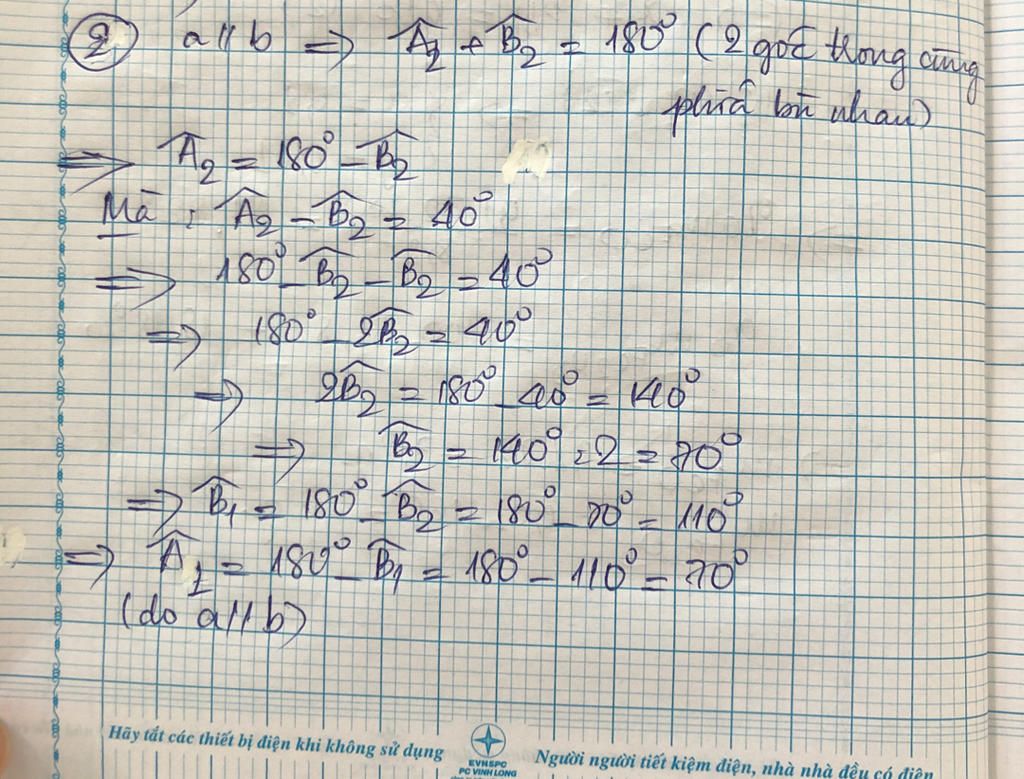 ② a // b => Â₂ + B̂₂ = 180° (2 góc trong cùng
phía bù nhau)
=> Â₂ = 180° - B̂₂
Mà : Â₂ - B̂₂ = 40°
=> 180° - B̂₂ - B̂₂ = 40°
=> 180° - 2B̂₂ = 40°
=> 2B̂₂ = 180° - 40° = 140°
=> B̂₂ = 140° : 2 = 70°
=> B̂₁ = 180° - B̂₂ = 180° - 70° = 110°
=> Â₁ = 180° - B̂₁ = 180° - 110° = 70°
(do a // b)
Hãy tắt các thiết bị điện khi không sử dụng
EVNSPC
PC VINH LONG
Người người tiết kiệm điện, nhà nhà đều có điện